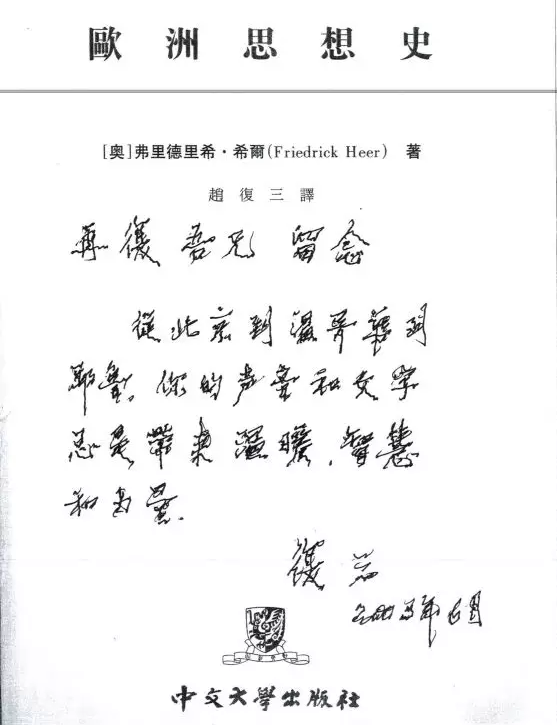 歐洲思想史
[奧]弗里德里希・希爾(Friedrick Heer) 著
趙復三譯
再復吾兄 留念
從北京到溫哥華到
你的声音和文字
总是帶來溫暖，智慧
和力量.
復三
年 月
中文大學出版社